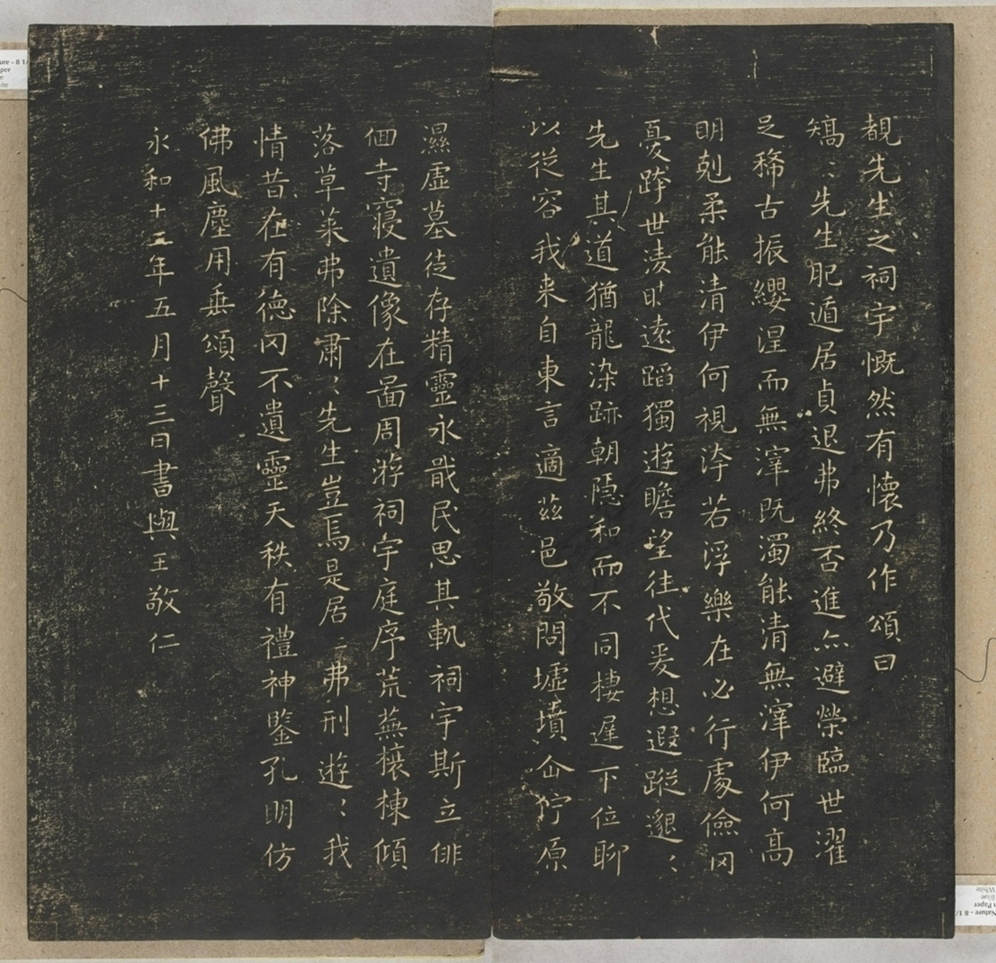 覩先生之祠宇慨然有懷乃作頌曰
矯〻先生肥遁居貞退弗終否進亦避榮臨世濯
足稀古振纓涅而無滓既濁能清無滓伊何高
明剋柔能清伊何視洿若浮樂在必行處儉罔
憂跨世淩時遠蹈獨遊瞻望往代爰想遐蹤邈〻
先生其道猶龍染跡朝隱和而不同棲遲下位聊
以從容我來自東言適茲邑敬問墟墳企佇原
濕虛墓徒存精靈永戢民思其軌祠宇斯立俳
佪寺寢遺像在啚周游祠宇庭序荒蕪榱棟傾
落草萊弗除肅〻先生豈焉是居〻弗刑遊〻我
情昔在有德罔不遺靈天秩有禮神鑒孔明仿
佛風塵用垂頌聲
永和十二年五月十三日書與王敬仁